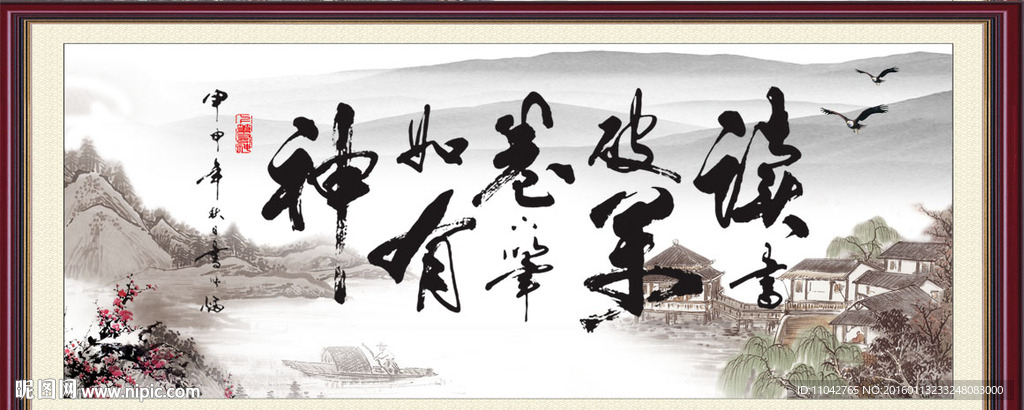 读書
破萬
卷下筆
如有
神
甲申年秋日書
昵图网 www.nipic.com
ID:11042765 NO:20160113233248083000